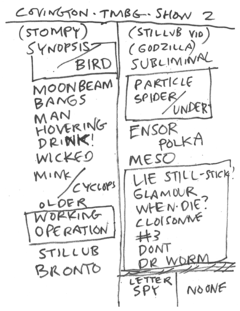 COVINGTON · TMBG · SHOW 2
(STOMPY)
SYNOPSIS
BIRD
MOONBEAM
BANGS
MAN
HOVERING
DRINK!
WICKED
MINK
/CYCLOPS
OLDER
WORKING
OPERATION
STILLUB
BRONTO
(STILLUB VID)
(GODZILLA)
SUBLIMINAL
PARTICLE
SPIDER
/UNDER
ENSOR
POLKA
MESO
LIE STILL-STICK?
GLAMOUR
WHEN·DIE?
CLOISONNE
#3
DONT
DR WORM
LETTER
SPY
NO ONE